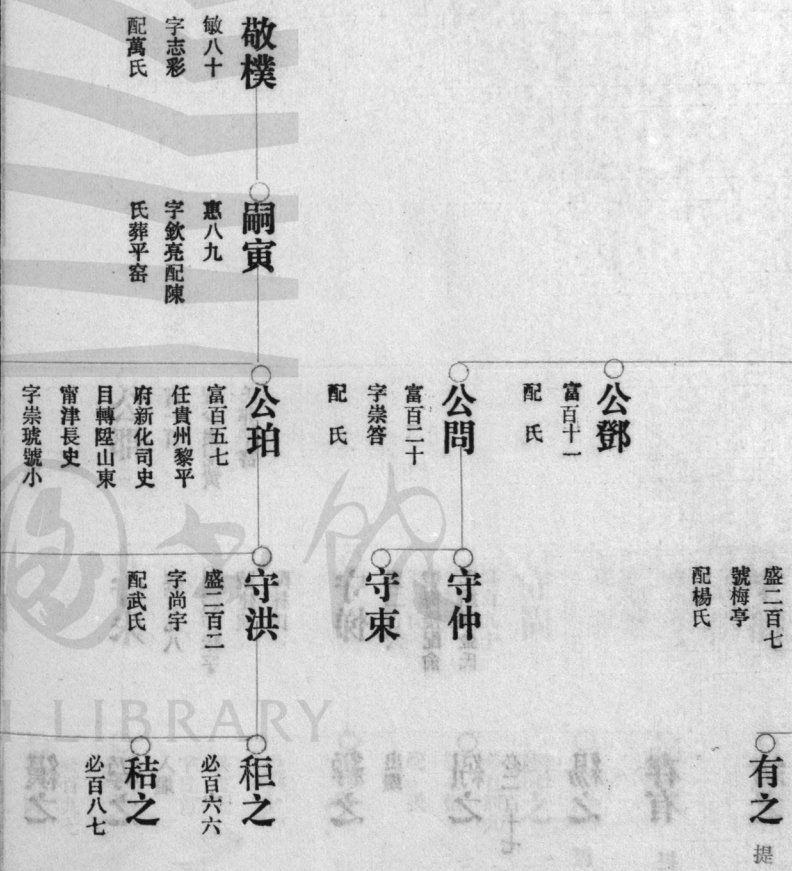 敬樸
敏八十
字志彩
配萬氏
嗣寅
惠八九
字欽亮配陳
氏葬平窑
公鄧
富百十一
配　氏
公問
富百二十
字崇答
配　氏
公珀
富百五七
任貴州黎平
府新化司史
目轉陞山東
甯津長史
字崇琥號小
盛二百七
號梅亭
配楊氏
守仲
守束
守洪
盛二百二
字尚宇
配武氏
有之
提
秬之
必百六六
秸之
必百八七
LIBRARY